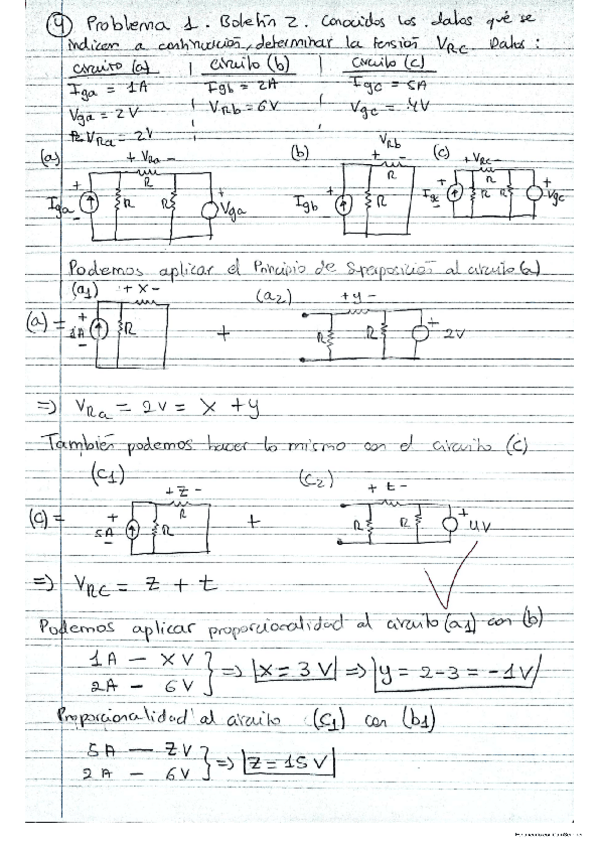 ④ Problema 1. Boletín 2. Conocidos los datos que se
indican a continuación, determinar la tensión VRC Datos:
circuito (a) | circuito (b) | circuito (c)
Iga = 1A | Igb = 2A | Igc = 5A
Vga = 2V | VRb = 6V | Vgc = 4V
VRa = 2V
(a) + VRa - (b) VRb + - (c) + VRc -
R R R
+ Iga - R R + Vga + Igb - R + Igc - R R + Vgc
Podemos aplicar el Principio de Superposición al circuito (a)
(a1) + x - (a2) + y -
(a) = + 1A - R + R R + 2V
=> VRa = 2V = x + y
También podemos hacer lo mismo con el circuito (c)
(c1) (c2)
+ z - + t -
R
(c) = + 5A - R + R R + 4V
=> VRC = z + t
Podemos aplicar proporcionalidad al circuito (a1) con (b)
1A — XV
2A — 6V } => x = 3V => y = 2-3 = -1V
Proporcionalidad al circuito (c1) con (b1)
5A — ZV
2A — 6V } => z = 15V